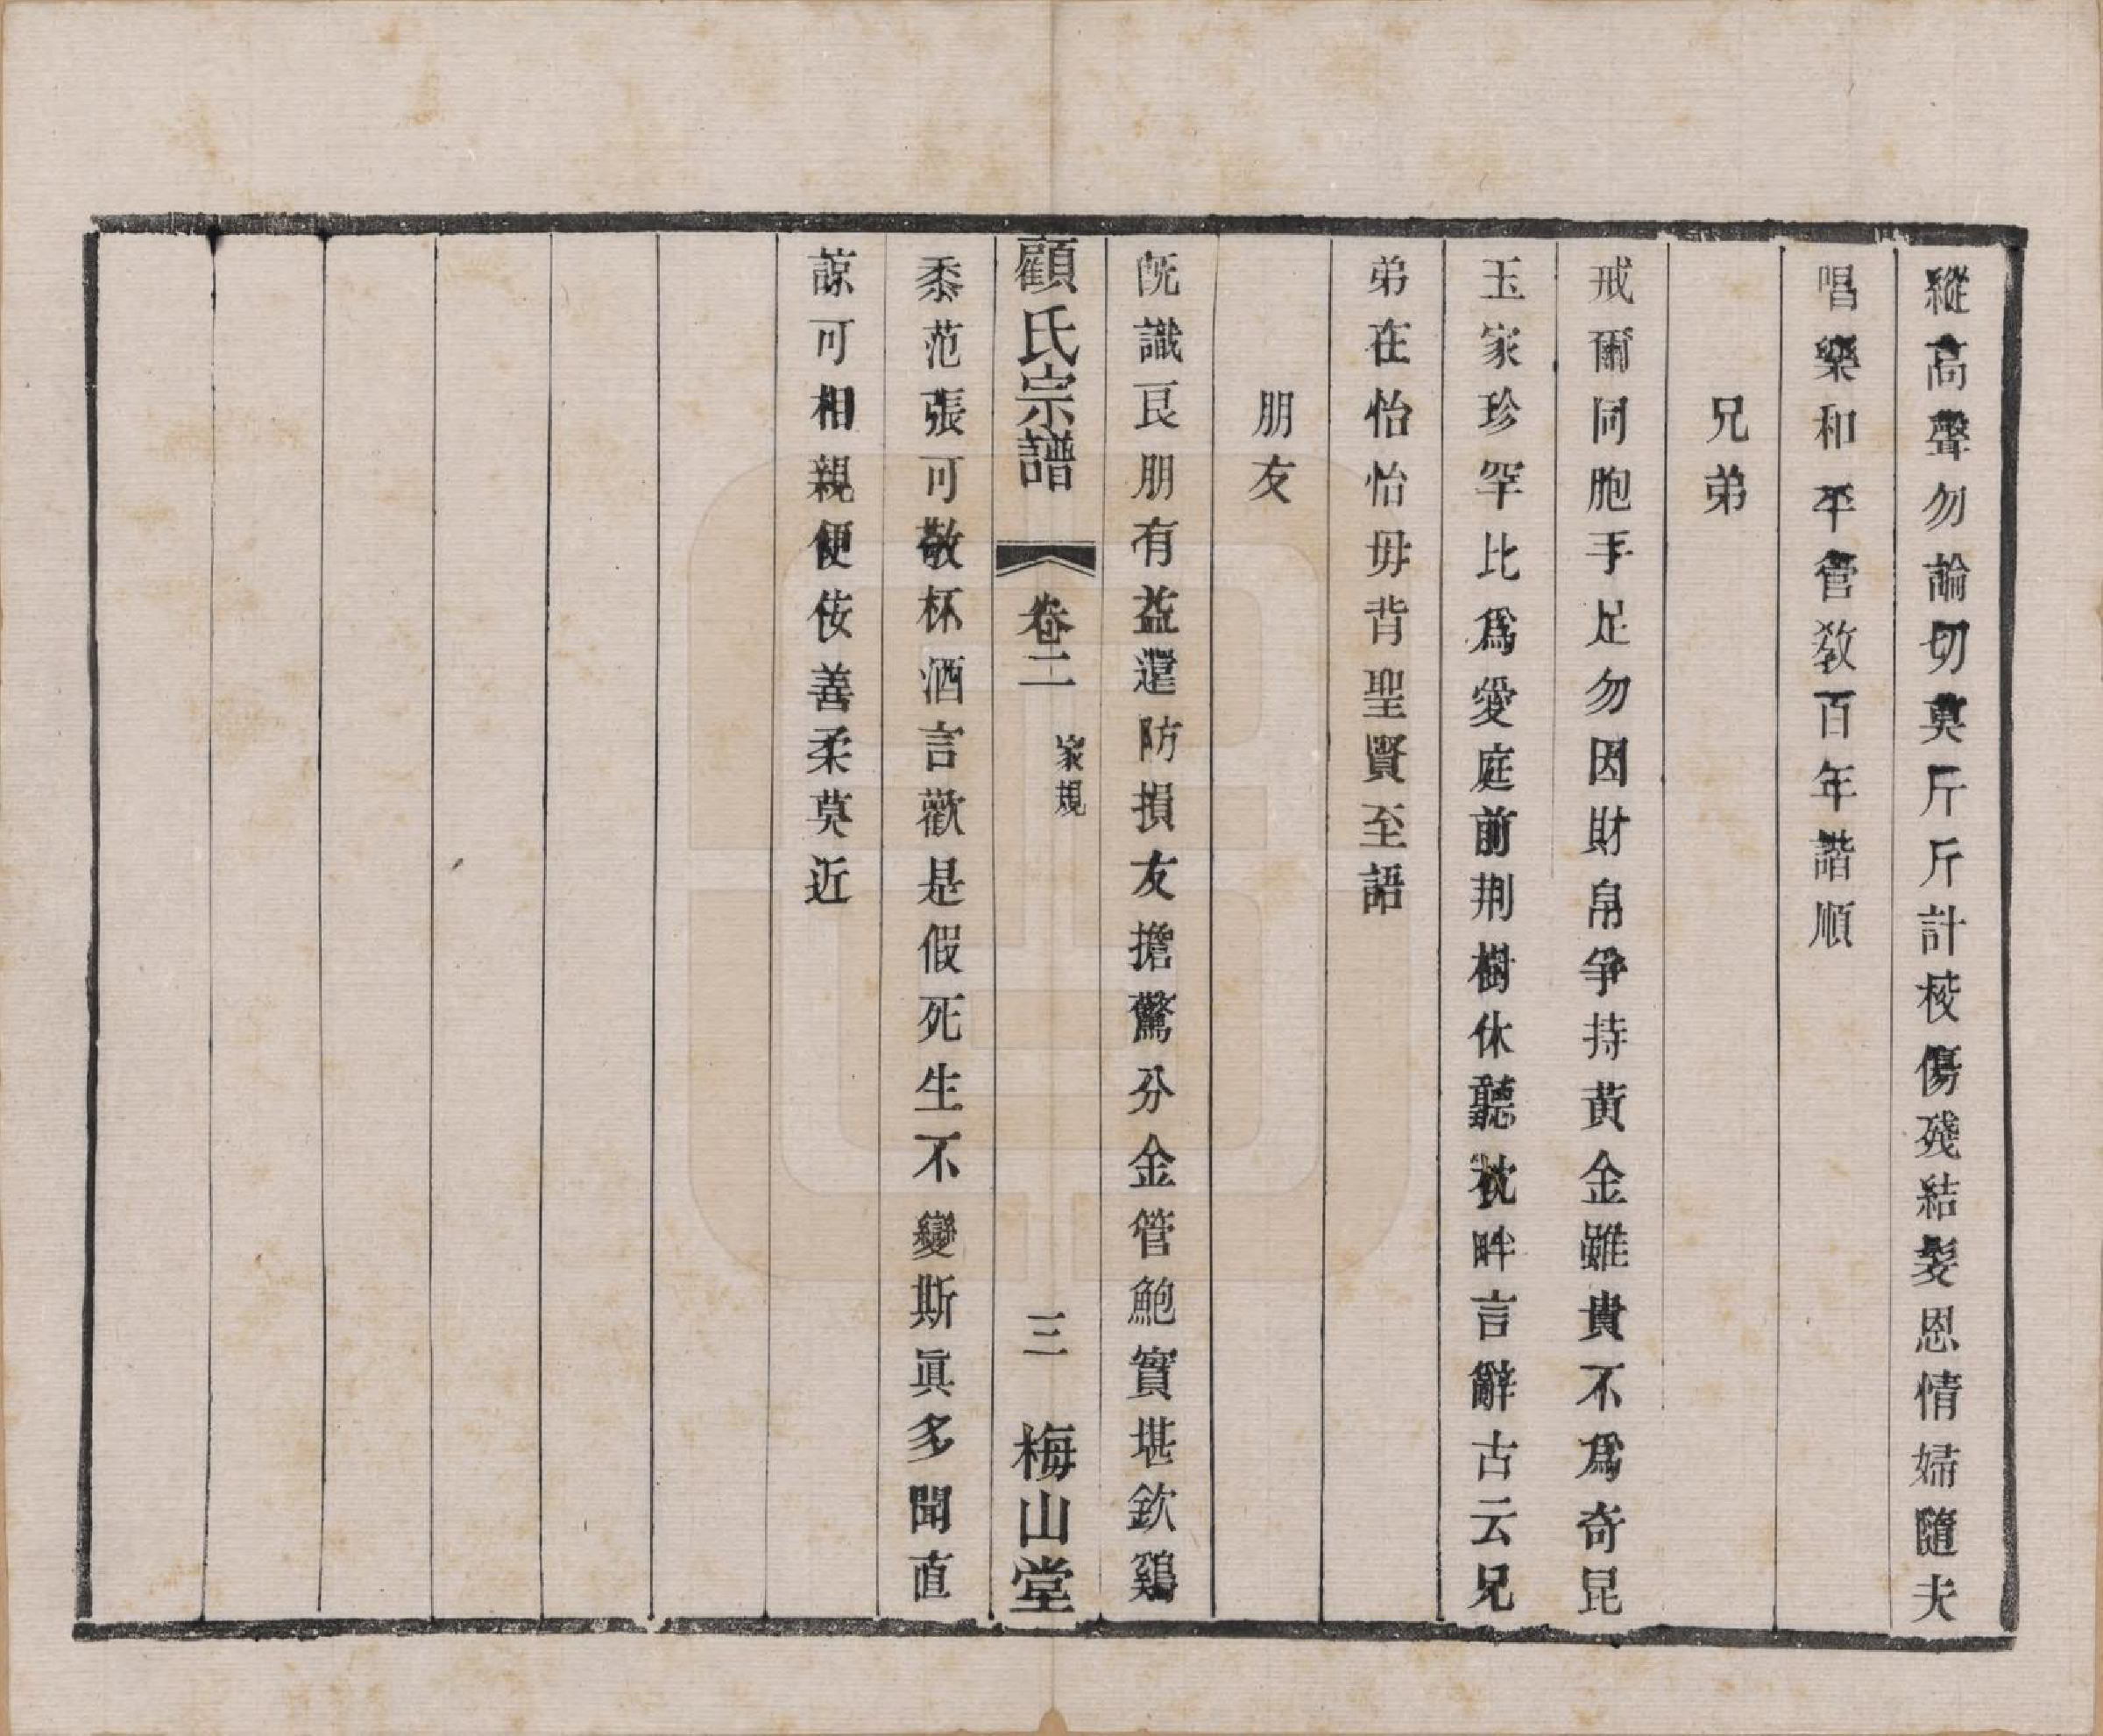 縱高聲勿論切莫斤斤計校傷殘結髮恩情婦隨夫
唱樂和平㑹敎百年諧順
兄弟
戒爾同胞手足勿因財帛爭持黃金雖貴不爲奇昆
玉家珍罕比爲愛庭前荆樹休聽枕畔言辭古云兄
弟在怡怡毋背聖賢至語
朋友
旣識良朋有益還防損友擔驚分金管鮑實堪欽鷄
顧氏宗譜
卷二
家規
三
梅山堂
黍范張可敬杯酒言歡是假死生不變斯眞多聞直
諒可相親便佞善柔莫近